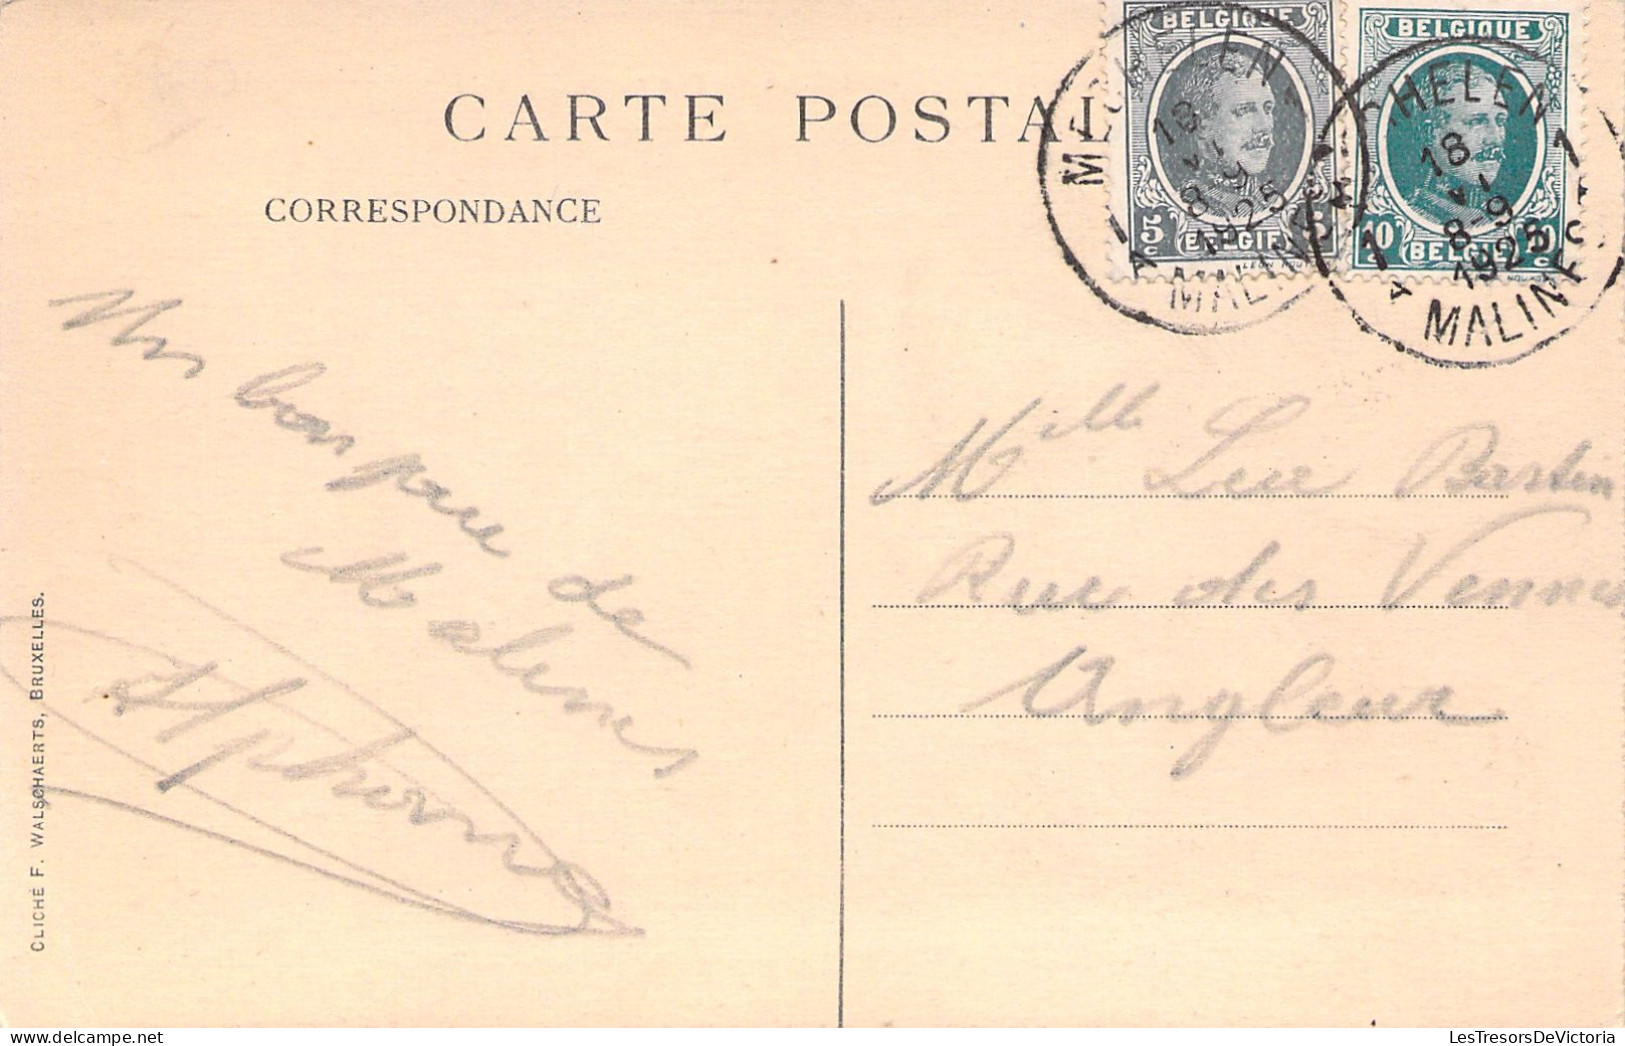 CARTE POSTAL
CORRESPONDANCE
BELGIQUE
5c 5c
BELGIE
BELGIQUE
10c 10c
BELGIE
MECHELEN
18
VI
8-9
1925
1 A
MALINES
MECHELEN
1
18
VI
8-9
1925
1 A
MALINES
Un bonjour de
Malines
Alphonse
Mlle Luc Bastin
Rue des Vennes
Angleur
CLICHÉ F. WALSCHAERTS, BRUXELLES.
LesTresorsDeVictoria